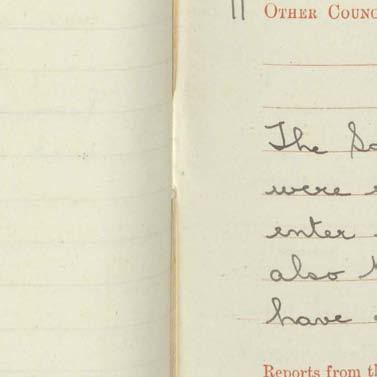 OTHER COUNC
The
were
enter
also
have
Reports from th